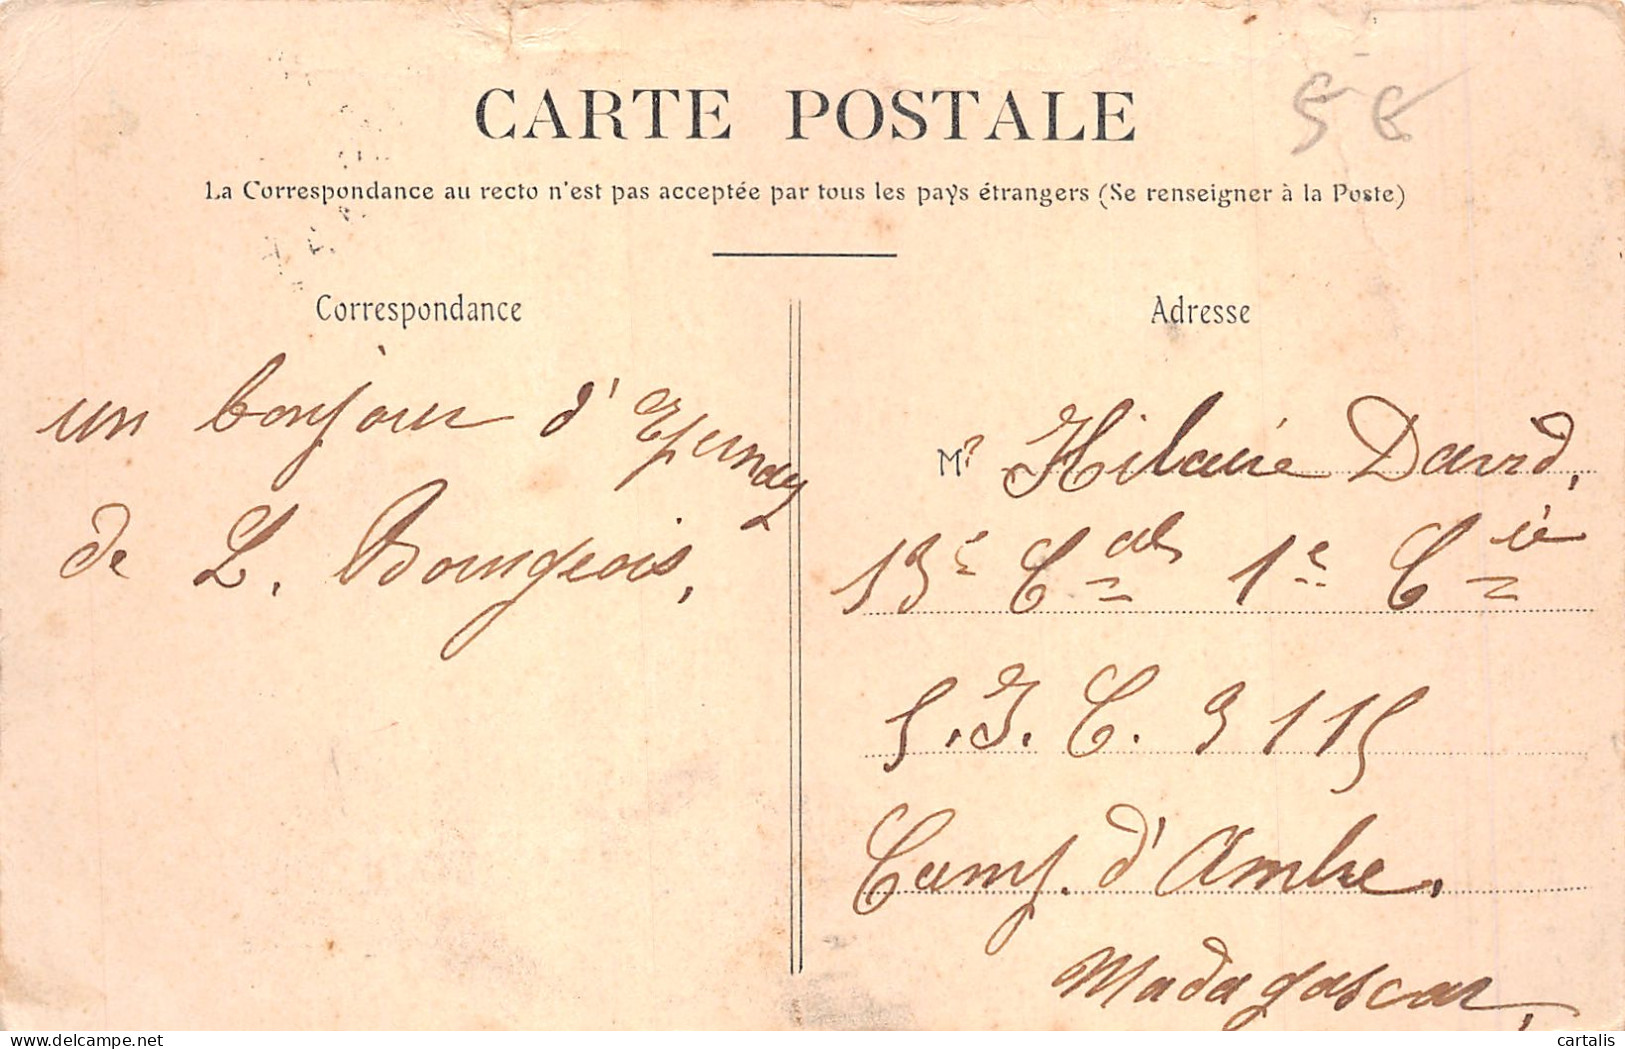 CARTE POSTALE
5€
La Correspondance au recto n'est pas acceptée par tous les pays étrangers (Se renseigner à la Poste)
Correspondance
un bonjour d'Epernay
de L. Bourgeois,
Adresse
Mr Hilaire David,
13e Cal 1e Cie
S. I. C. 3115
Camp. d'Ambre,
Madagascar,
delcampe.net
cartalis